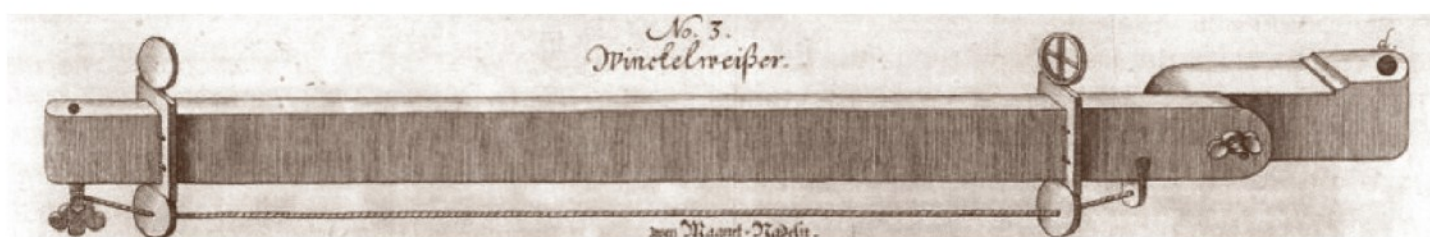 No. 3.
Winckelweißer.
d.
zweÿ Magnet-Nadeln.